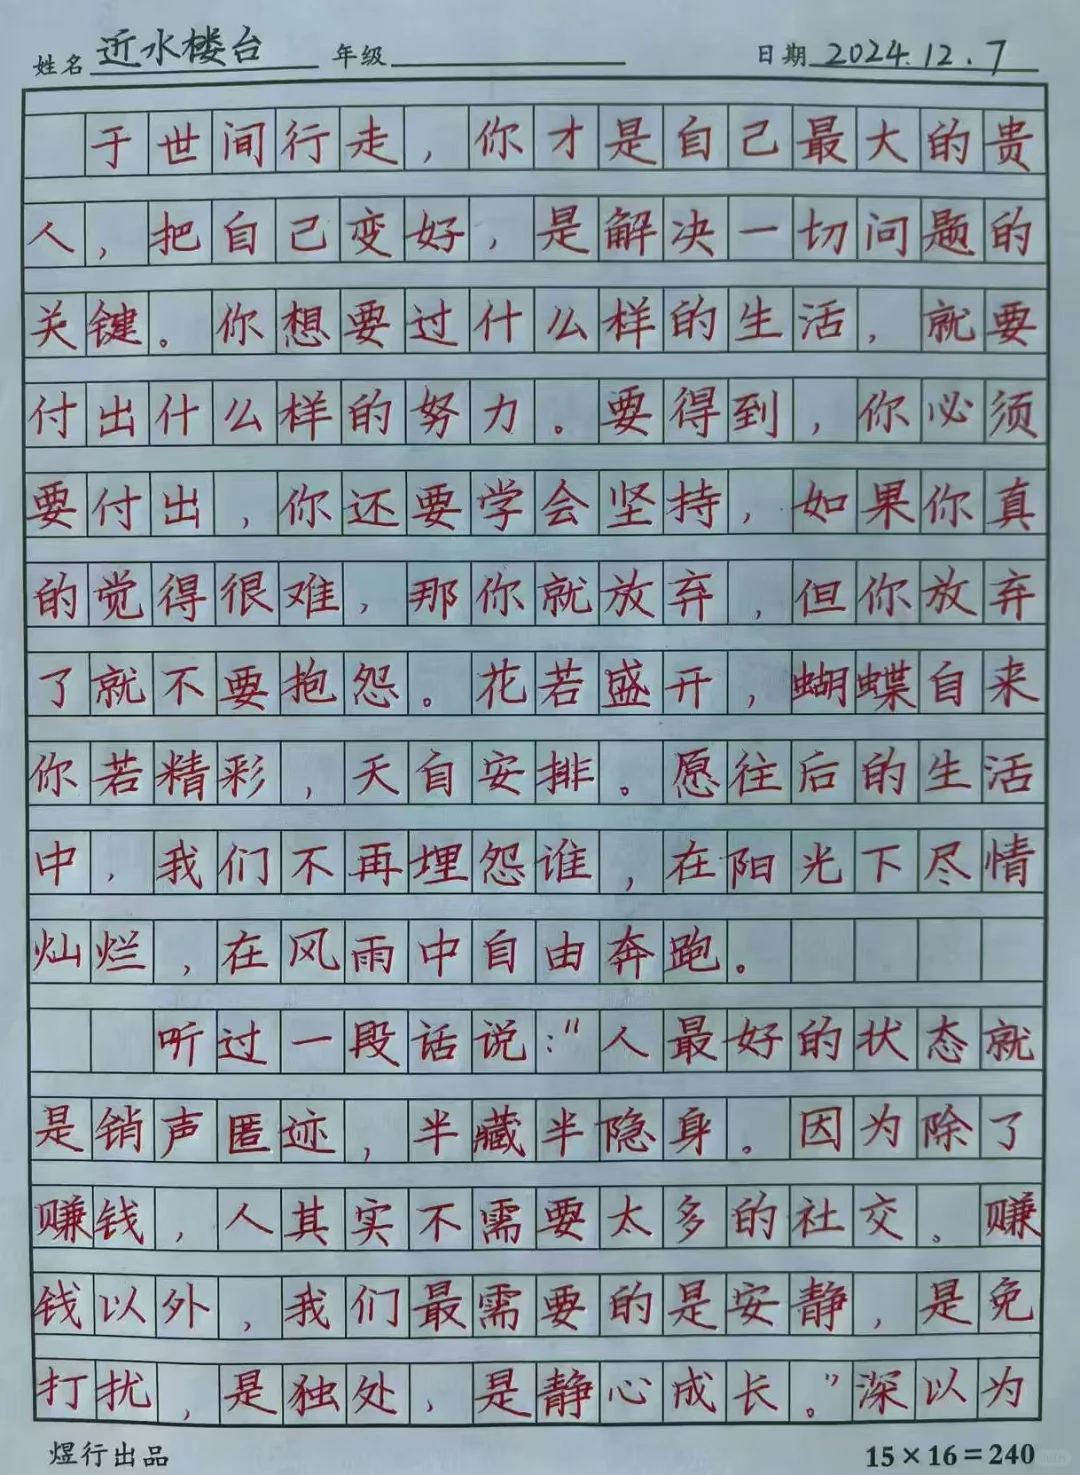 姓名 近水楼台 年级 日期 2024.12.7
于世间行走，你才是自己最大的贵
人，把自己变好，是解决一切问题的
关键。你想要过什么样的生活，就要
付出什么样的努力。要得到，你必须
要付出，你还要学会坚持，如果你真
的觉得很难，那你就放弃，但你放弃
了就不要抱怨。花若盛开，蝴蝶自来
你若精彩，天自安排。愿往后的生活
中，我们不再埋怨谁，在阳光下尽情
灿烂，在风雨中自由奔跑。
听过一段话说："人最好的状态就
是销声匿迹，半藏半隐身。因为除了
赚钱，人其实不需要太多的社交。赚
钱以外，我们最需要的是安静，是免
打扰，是独处，是静心成长。"深以为
煜行出品 15×16=240